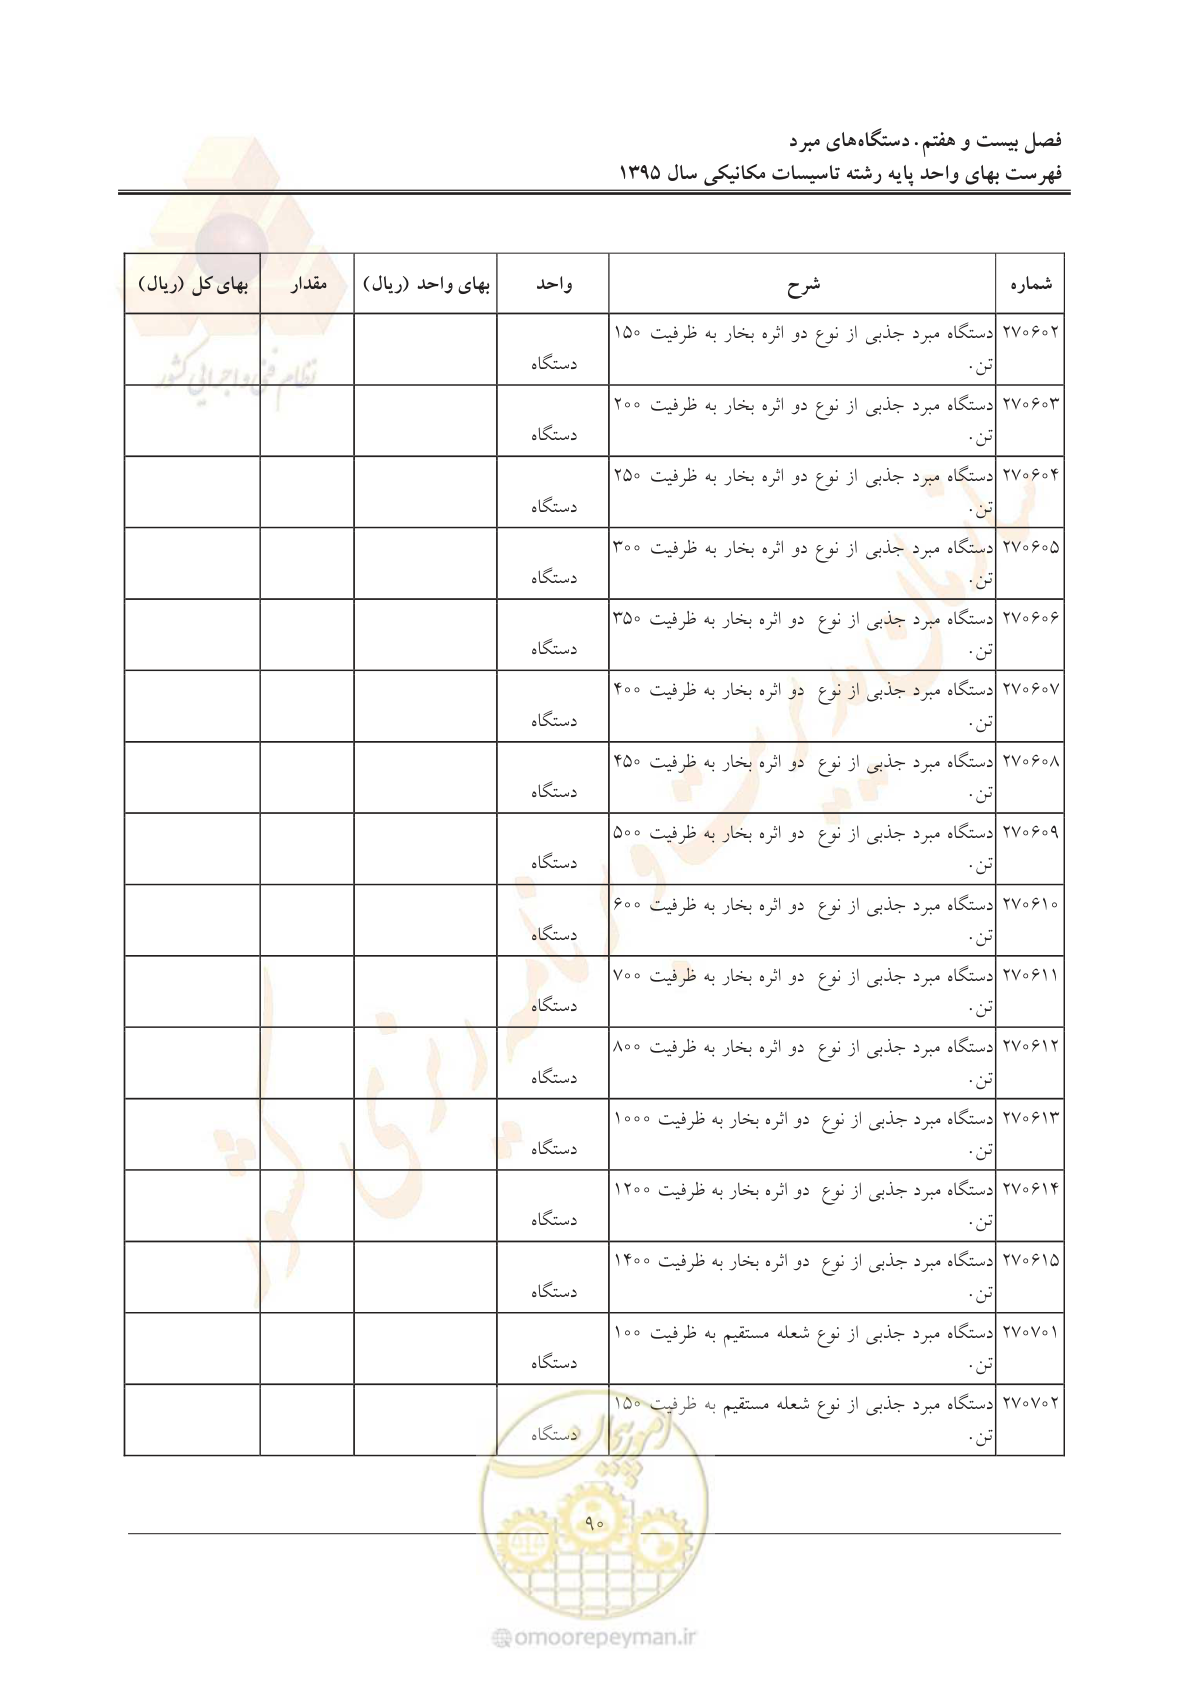 فصل بیست و هفتم. دستگاه‌های مبرد
فهرست بهای واحد پایه رشته تاسیسات مکانیکی سال ۱۳۹۵
شماره شرح واحد بهای واحد (ریال) مقدار بهای کل (ریال)
۲۷۰۶۰۲ دستگاه مبرد جذبی از نوع دو اثره بخار به ظرفیت ۱۵۰
تن. دستگاه
۲۷۰۶۰۳ دستگاه مبرد جذبی از نوع دو اثره بخار به ظرفیت ۲۰۰
تن. دستگاه
۲۷۰۶۰۴ دستگاه مبرد جذبی از نوع دو اثره بخار به ظرفیت ۲۵۰
تن. دستگاه
۲۷۰۶۰۵ دستگاه مبرد جذبی از نوع دو اثره بخار به ظرفیت ۳۰۰
تن. دستگاه
۲۷۰۶۰۶ دستگاه مبرد جذبی از نوع دو اثره بخار به ظرفیت ۳۵۰
تن. دستگاه
۲۷۰۶۰۷ دستگاه مبرد جذبی از نوع دو اثره بخار به ظرفیت ۴۰۰
تن. دستگاه
۲۷۰۶۰۸ دستگاه مبرد جذبی از نوع دو اثره بخار به ظرفیت ۴۵۰
تن. دستگاه
۲۷۰۶۰۹ دستگاه مبرد جذبی از نوع دو اثره بخار به ظرفیت ۵۰۰
تن. دستگاه
۲۷۰۶۱۰ دستگاه مبرد جذبی از نوع دو اثره بخار به ظرفیت ۶۰۰
تن. دستگاه
۲۷۰۶۱۱ دستگاه مبرد جذبی از نوع دو اثره بخار به ظرفیت ۷۰۰
تن. دستگاه
۲۷۰۶۱۲ دستگاه مبرد جذبی از نوع دو اثره بخار به ظرفیت ۸۰۰
تن. دستگاه
۲۷۰۶۱۳ دستگاه مبرد جذبی از نوع دو اثره بخار به ظرفیت ۱۰۰۰
تن. دستگاه
۲۷۰۶۱۴ دستگاه مبرد جذبی از نوع دو اثره بخار به ظرفیت ۱۲۰۰
تن. دستگاه
۲۷۰۶۱۵ دستگاه مبرد جذبی از نوع دو اثره بخار به ظرفیت ۱۴۰۰
تن. دستگاه
۲۷۰۷۰۱ دستگاه مبرد جذبی از نوع شعله مستقیم به ظرفیت ۱۰۰
تن. دستگاه
۲۷۰۷۰۲ دستگاه مبرد جذبی از نوع شعله مستقیم به ظرفیت ۱۵۰
تن. دستگاه
نظام فنی و اجرایی کشور
سازمان مدیریت و برنامه ریزی کشور
امور پیمان
۹۰
@omoorepeyman.ir